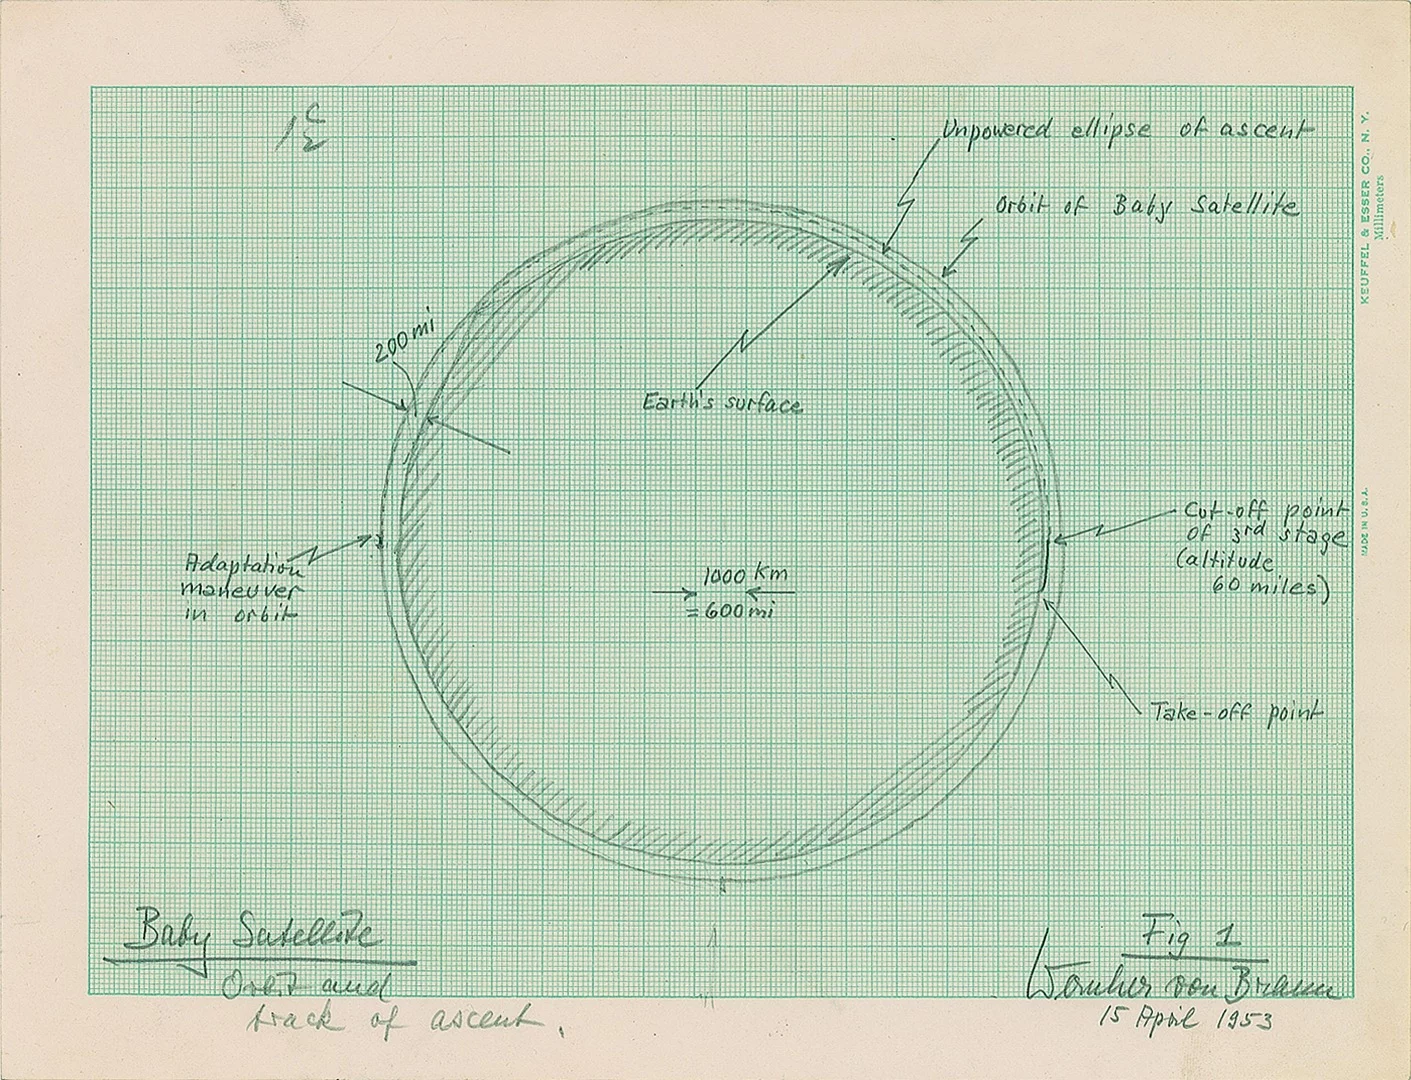 Unpowered ellipse of ascent
Orbit of Baby Satellite
KEUFFEL & ESSER CO., N. Y.
Millimeters
MADE IN U.S.A.
200 mi
Earth's surface
Cut-off point
of 3rd stage
(altitude
60 miles)
Adaptation
maneuver
in orbit
1000 km
= 600 mi
Take-off point
Baby Satellite
Orbit and
track of ascent.
Fig 1
Wernher von Braun
15 April 1953